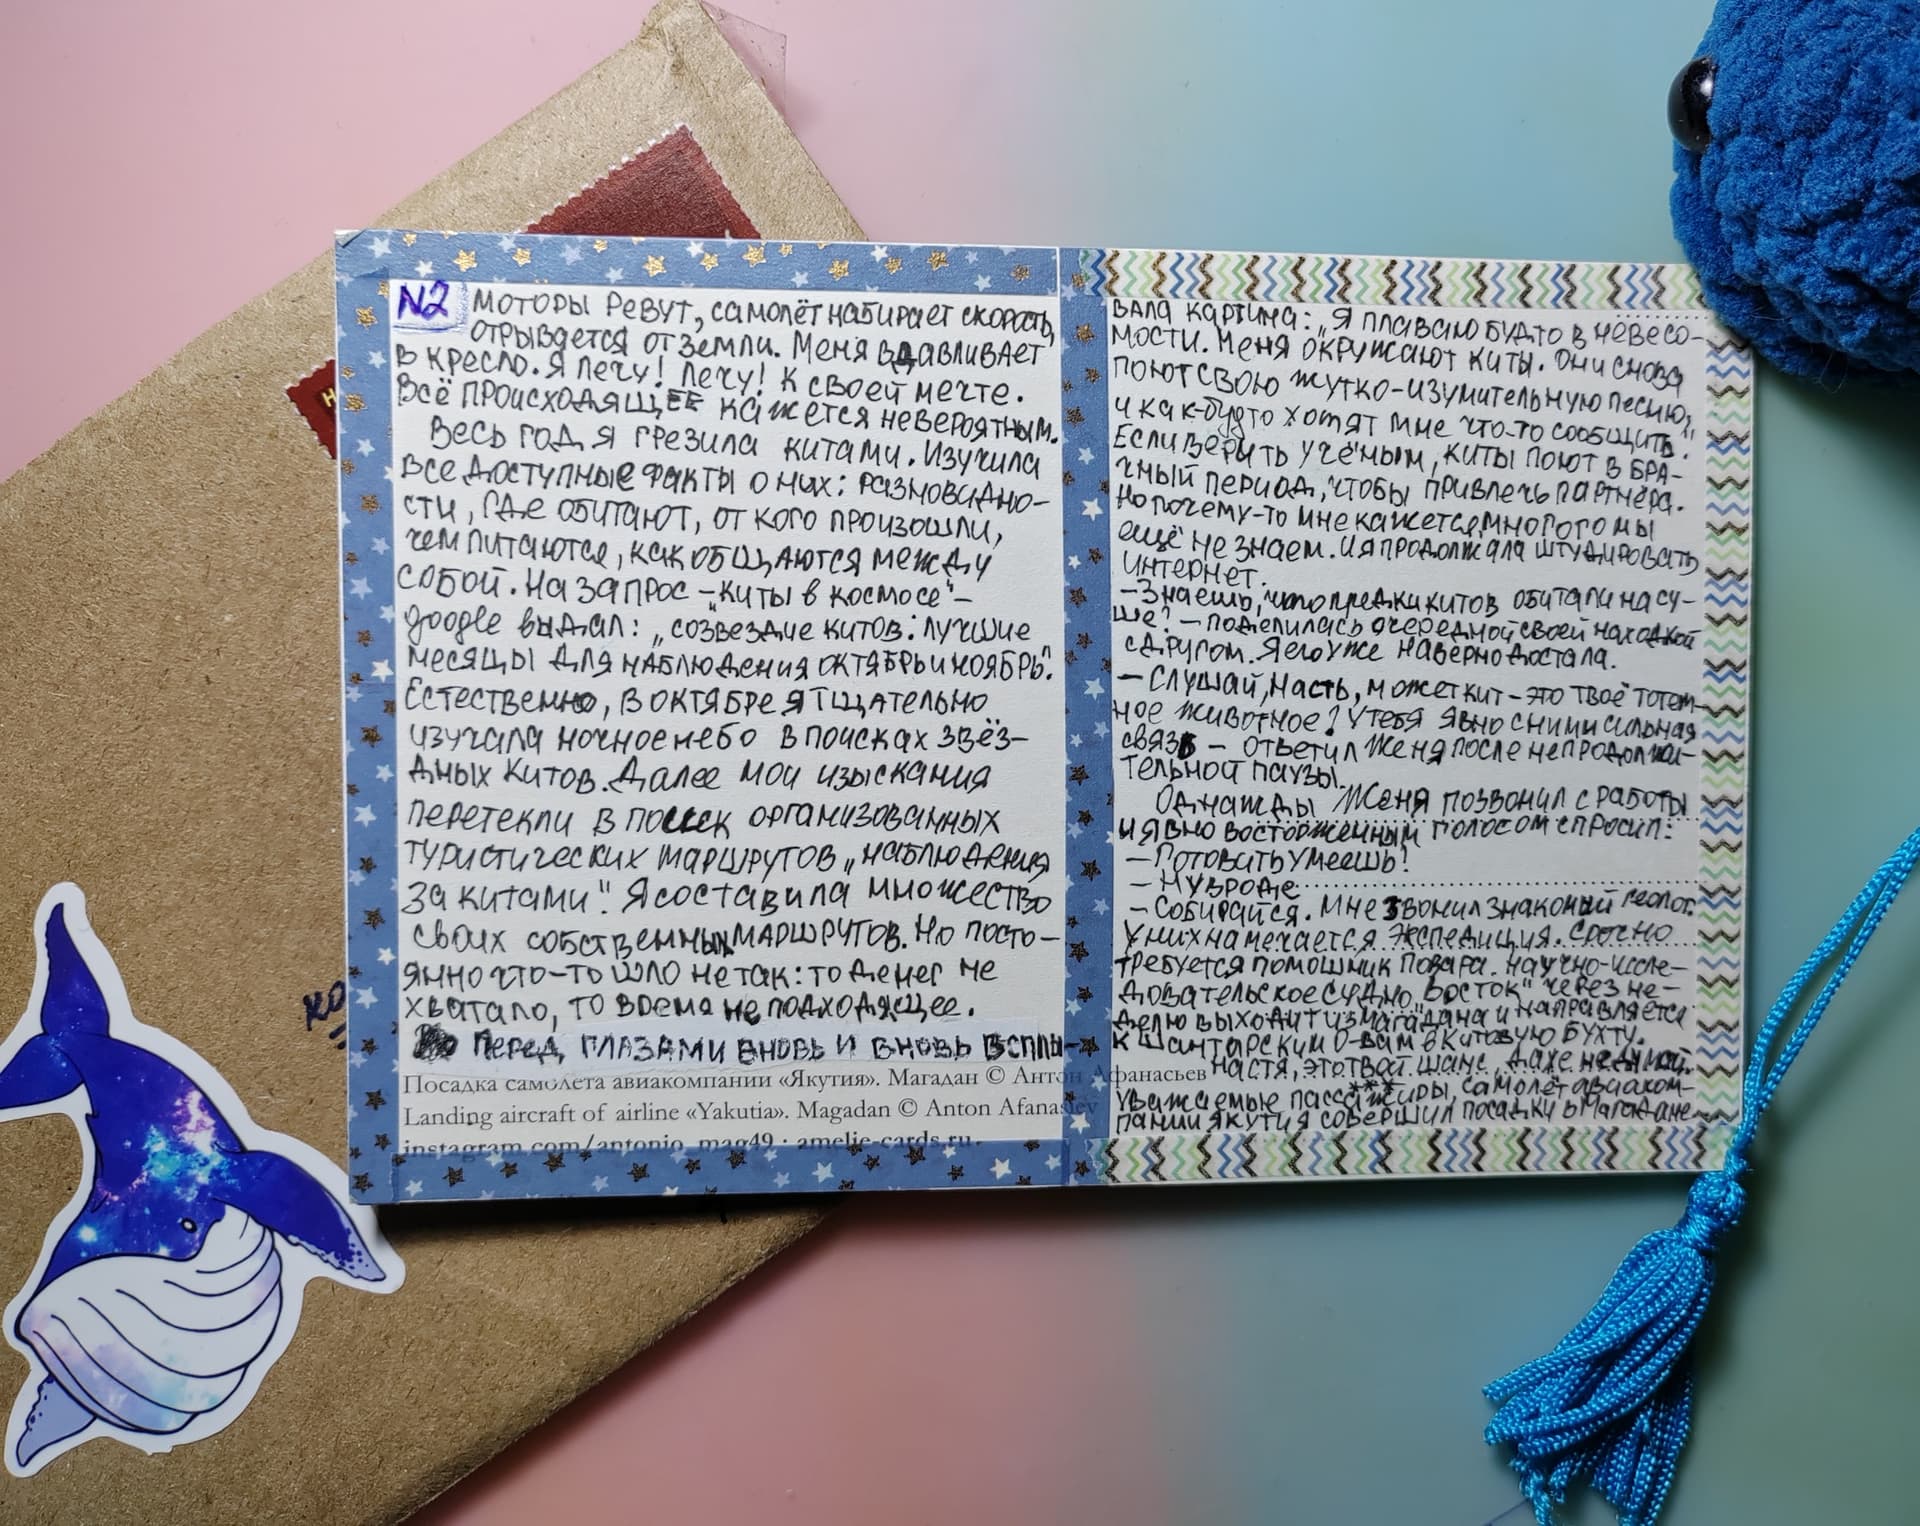 N2 Моторы ревут, самолёт набирает скорость,
отрывается от земли. Меня вдавливает
в кресло. Я лечу! Лечу! К своей мечте.
Всё происходящее кажется невероятным.
Весь год я грезила китами. Изучила
все доступные факты о них: разновидно-
сти, где обитают, от кого произошли,
чем питаются, как общаются между
собой. На запрос – „киты в космосе" –
google выдал: „созвездие китов: лучшие
месяцы для наблюдения октябрь и ноябрь".
Естественно, в октябре я тщательно
изучала ночное небо в поисках звёз-
дных китов. Далее мои изыскания
перетекли в поиск организованных
туристических маршрутов „наблюдения
за китами". Я составила множество
своих собственных маршрутов. Но посто-
янно что-то шло не так: то денег не
хватало, то время не подходящее.
Перед глазами вновь и вновь всплы-
Посадка самолета авиакомпании «Якутия». Магадан © Антон Афанасьев
Landing aircraft of airline «Yakutia». Magadan © Anton Afanasiev
instagram.com/antonio_mag49 · amelie-cards.ru
вала картина: „Я плаваю будто в невесо-
мости. Меня окружают киты. Они снова
поют свою жутко-изумительную песню,
и как-будто хотят мне что-то сообщить".
Если верить учёным, киты поют в бра-
чный период, чтобы привлечь партнёра.
Но почему-то мне кажется, многого мы
ещё не знаем. И я продолжала штудировать
интернет.
– Знаешь, что предки китов обитали на су-
ше? – поделилась очередной своей находкой
с другом. Я его уже наверно достала.
– Слушай, Насть, может кит – это твоё тотем-
ное животное? У тебя явно с ними сильная
связь – ответил Женя после непродолжи-
тельной паузы.
Однажды Женя позвонил с работы
и явно восторженным голосом спросил:
– Готовить умеешь?
– Ну вроде
– Собирайся. Мне звонил знакомый геолог.
У них намечается экспедиция. Срочно
требуется помошник повара. Научно-иссле-
довательское судно „Восток" через не-
делю выходит из Магадана и направляется
к Шантарским о-вам в Китовую бухту.
Настя, это твой шанс, даже не думай.
***
Уважаемые пассажиры, самолёт авиаком-
пании Якутия совершил посадку в Магадане